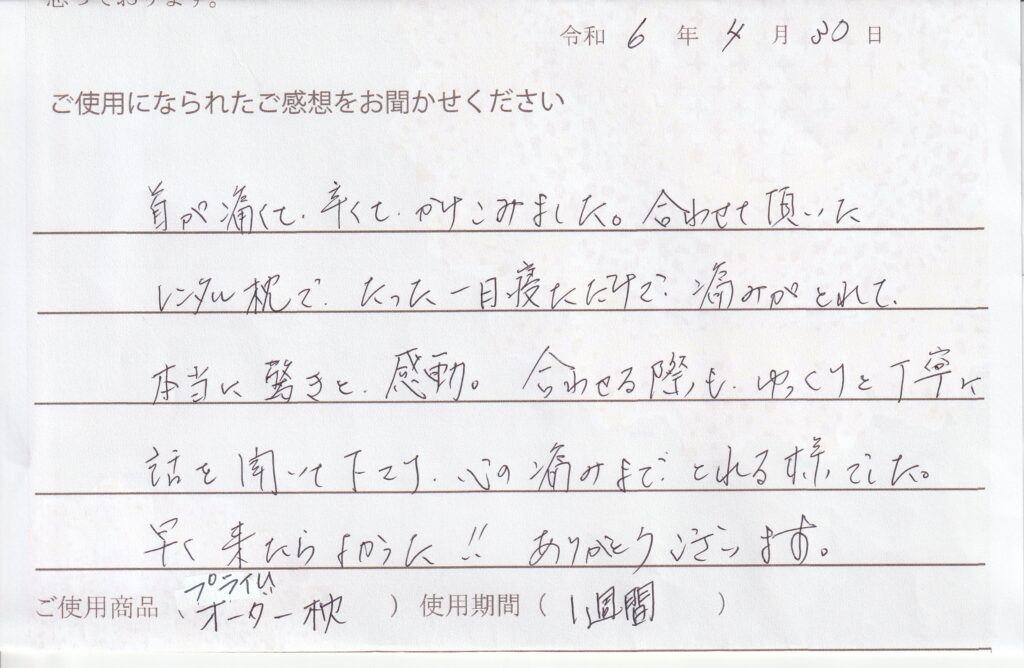 思っております。
令和 6 年 4 月 30 日
ご使用になられたご感想をお聞かせください
首が痛くて、辛くて、かけこみました。合わせて頂いた
レンタル枕で、たった一日寝ただけで、痛みがとれて、
本当に驚きと、感動。合わせる際も、ゆっくりと丁寧に
話を聞いて下さり、心の痛みまで、とれる様でした。
早く来たらよかった!! ありがとうございます。
ご使用商品 オーダー枕 ) 使用期間 ( 1週間 )